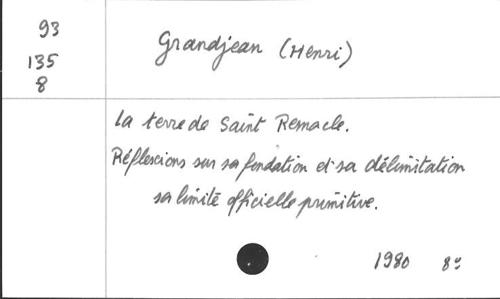 93
135
8
Grandjean (Henri)
La terre de Saint Remacle.
Réflexions sur sa fondation et sa délimitation
sa limite officielle primitive.
1980 8°